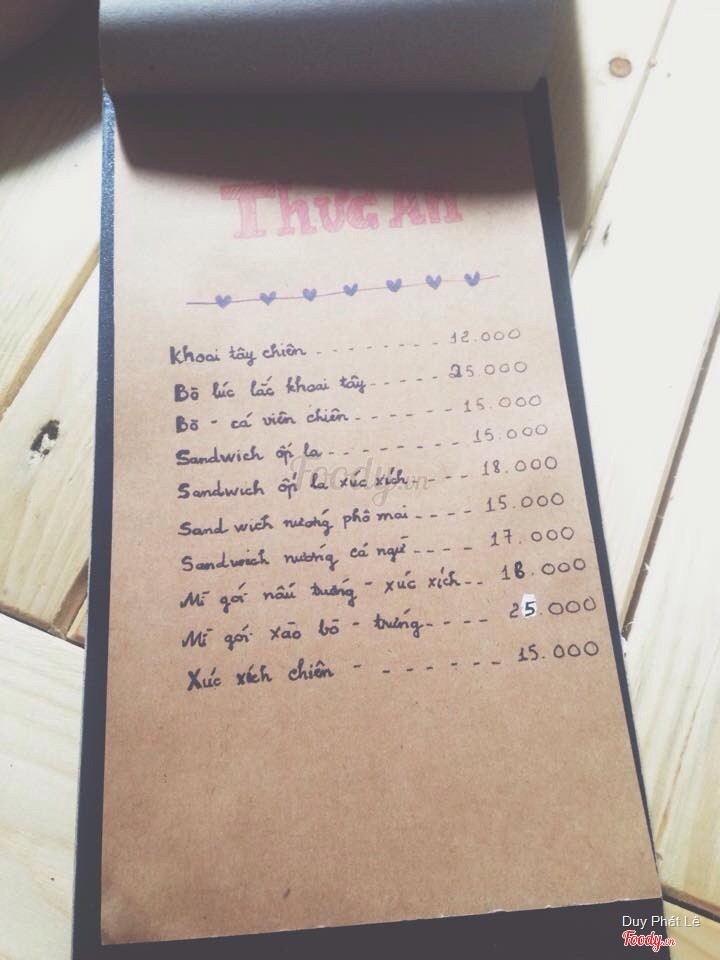 Thức Ăn
Khoai tây chiên - - - - - - - - 12.000
Bò lúc lắc khoai tây - - - - - 25.000
Bò - cá viên chiên - - - - - - 15.000
Sandwich ốp la - - - - - - - - 15.000
Sandwich ốp la xúc xích - - - - 18.000
Sandwich nướng phô mai - - - - 15.000
Sandwich nướng cá ngừ - - - - 17.000
Mì gói nấu trướng - xúc xích - - 18.000
Mì gói xào bò - trứng - - - - 25.000
Xúc xích chiên - - - - - - - 15.000
Foody.vn
Duy Phát Lê
Foody.vn